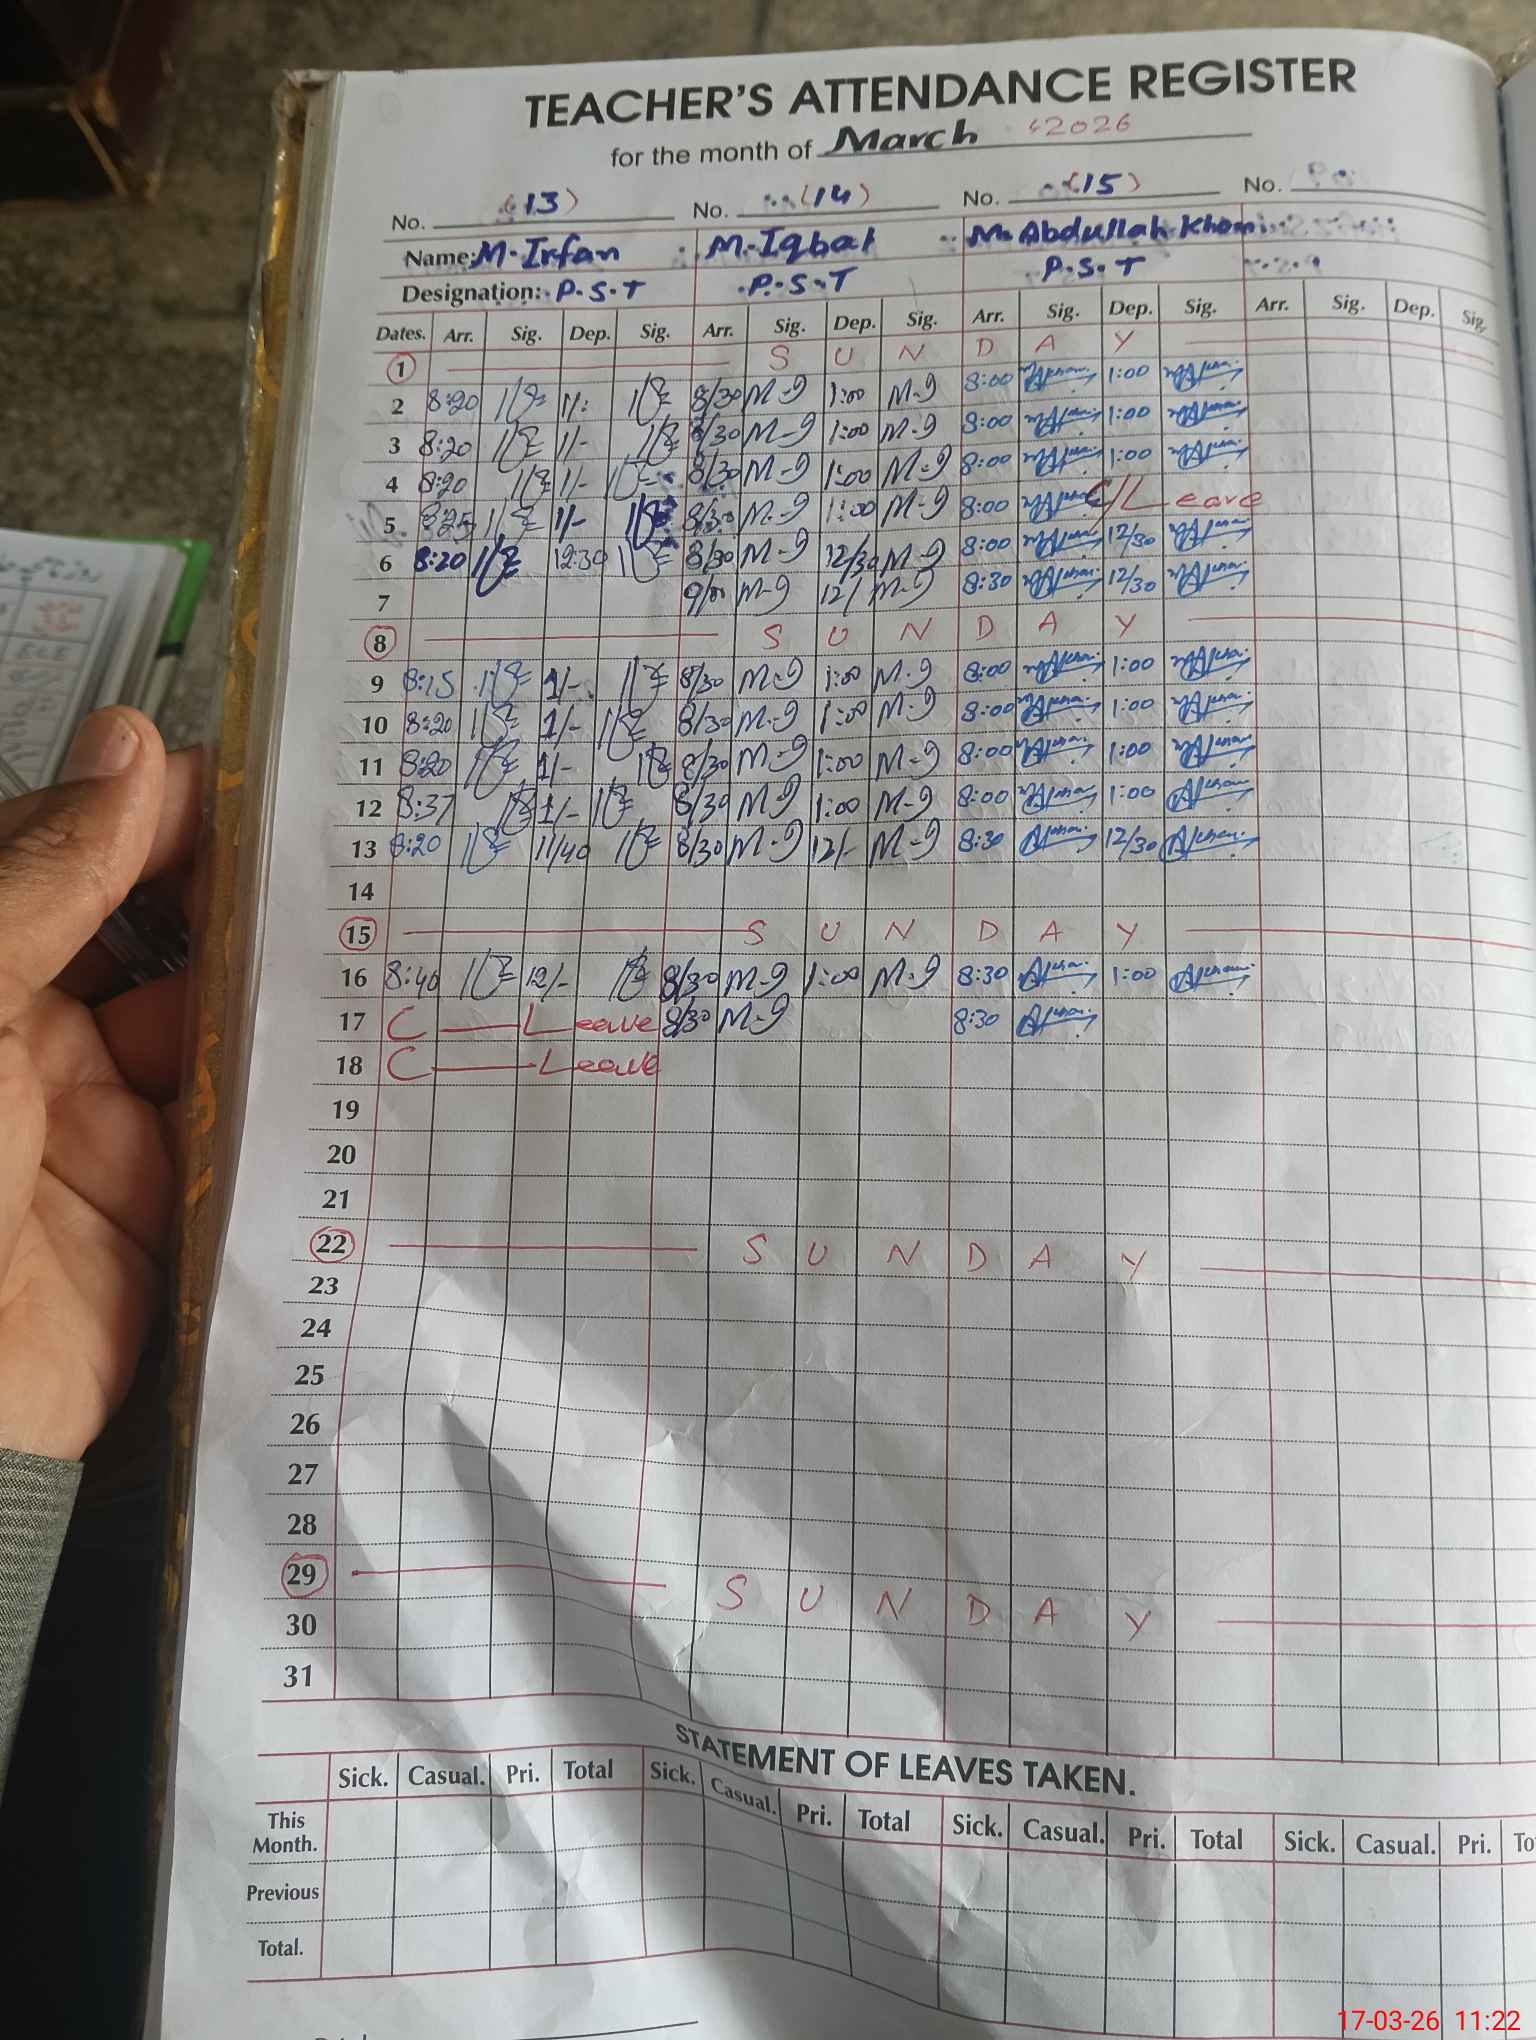 TEACHER'S ATTENDANCE REGISTER
for the month of March 2026
No. (13) No. (14) No. (15) No.
Name: M. Irfan M. Iqbal M. Abdullah Khan
Designation: P.S.T P.S.T P.S.T
Dates. Arr. Sig. Dep. Sig. Arr. Sig. Dep. Sig. Arr. Sig. Dep. Sig. Arr. Sig. Dep. Sig.
1 S U N D A Y
2 8:20 1/: 8/30 1:00 8:00 1:00
3 8:20 1/- 8/30 1:00 8:00 1:00
4 8:20 1/- 8/30 1:00 8:00 1:00
5 8:25 1/- 8/30 1:00 8:00 C/Leave
6 8:20 12:30 8/30 12/30 8:00 12/30
7 12/ 8:30 12/30
8 S U N D A Y
9 8:15 1/- 8/30 1:00 8:00 1:00
10 8:20 1/- 8/30 1:00 8:00 1:00
11 8:20 1/- 8/30 1:00 8:00 1:00
12 8:37 1/- 8/30 1:00 8:00 1:00
13 8:20 11/40 8/30 12/- 8:30 12/30
14
15 S U N D A Y
16 8:40 12/- 8/30 1:00 8:30 1:00
17 C Leave 8/30 8:30
18 C Leave
19
20
21
22 S U N D A Y
23
24
25
26
27
28
29 S U N D A Y
30
31
STATEMENT OF LEAVES TAKEN.
Sick. Casual. Pri. Total Sick. Casual. Pri. Total Sick. Casual. Pri. Total Sick. Casual. Pri.
This
Month.
Previous
Total.
17-03-26 11:22